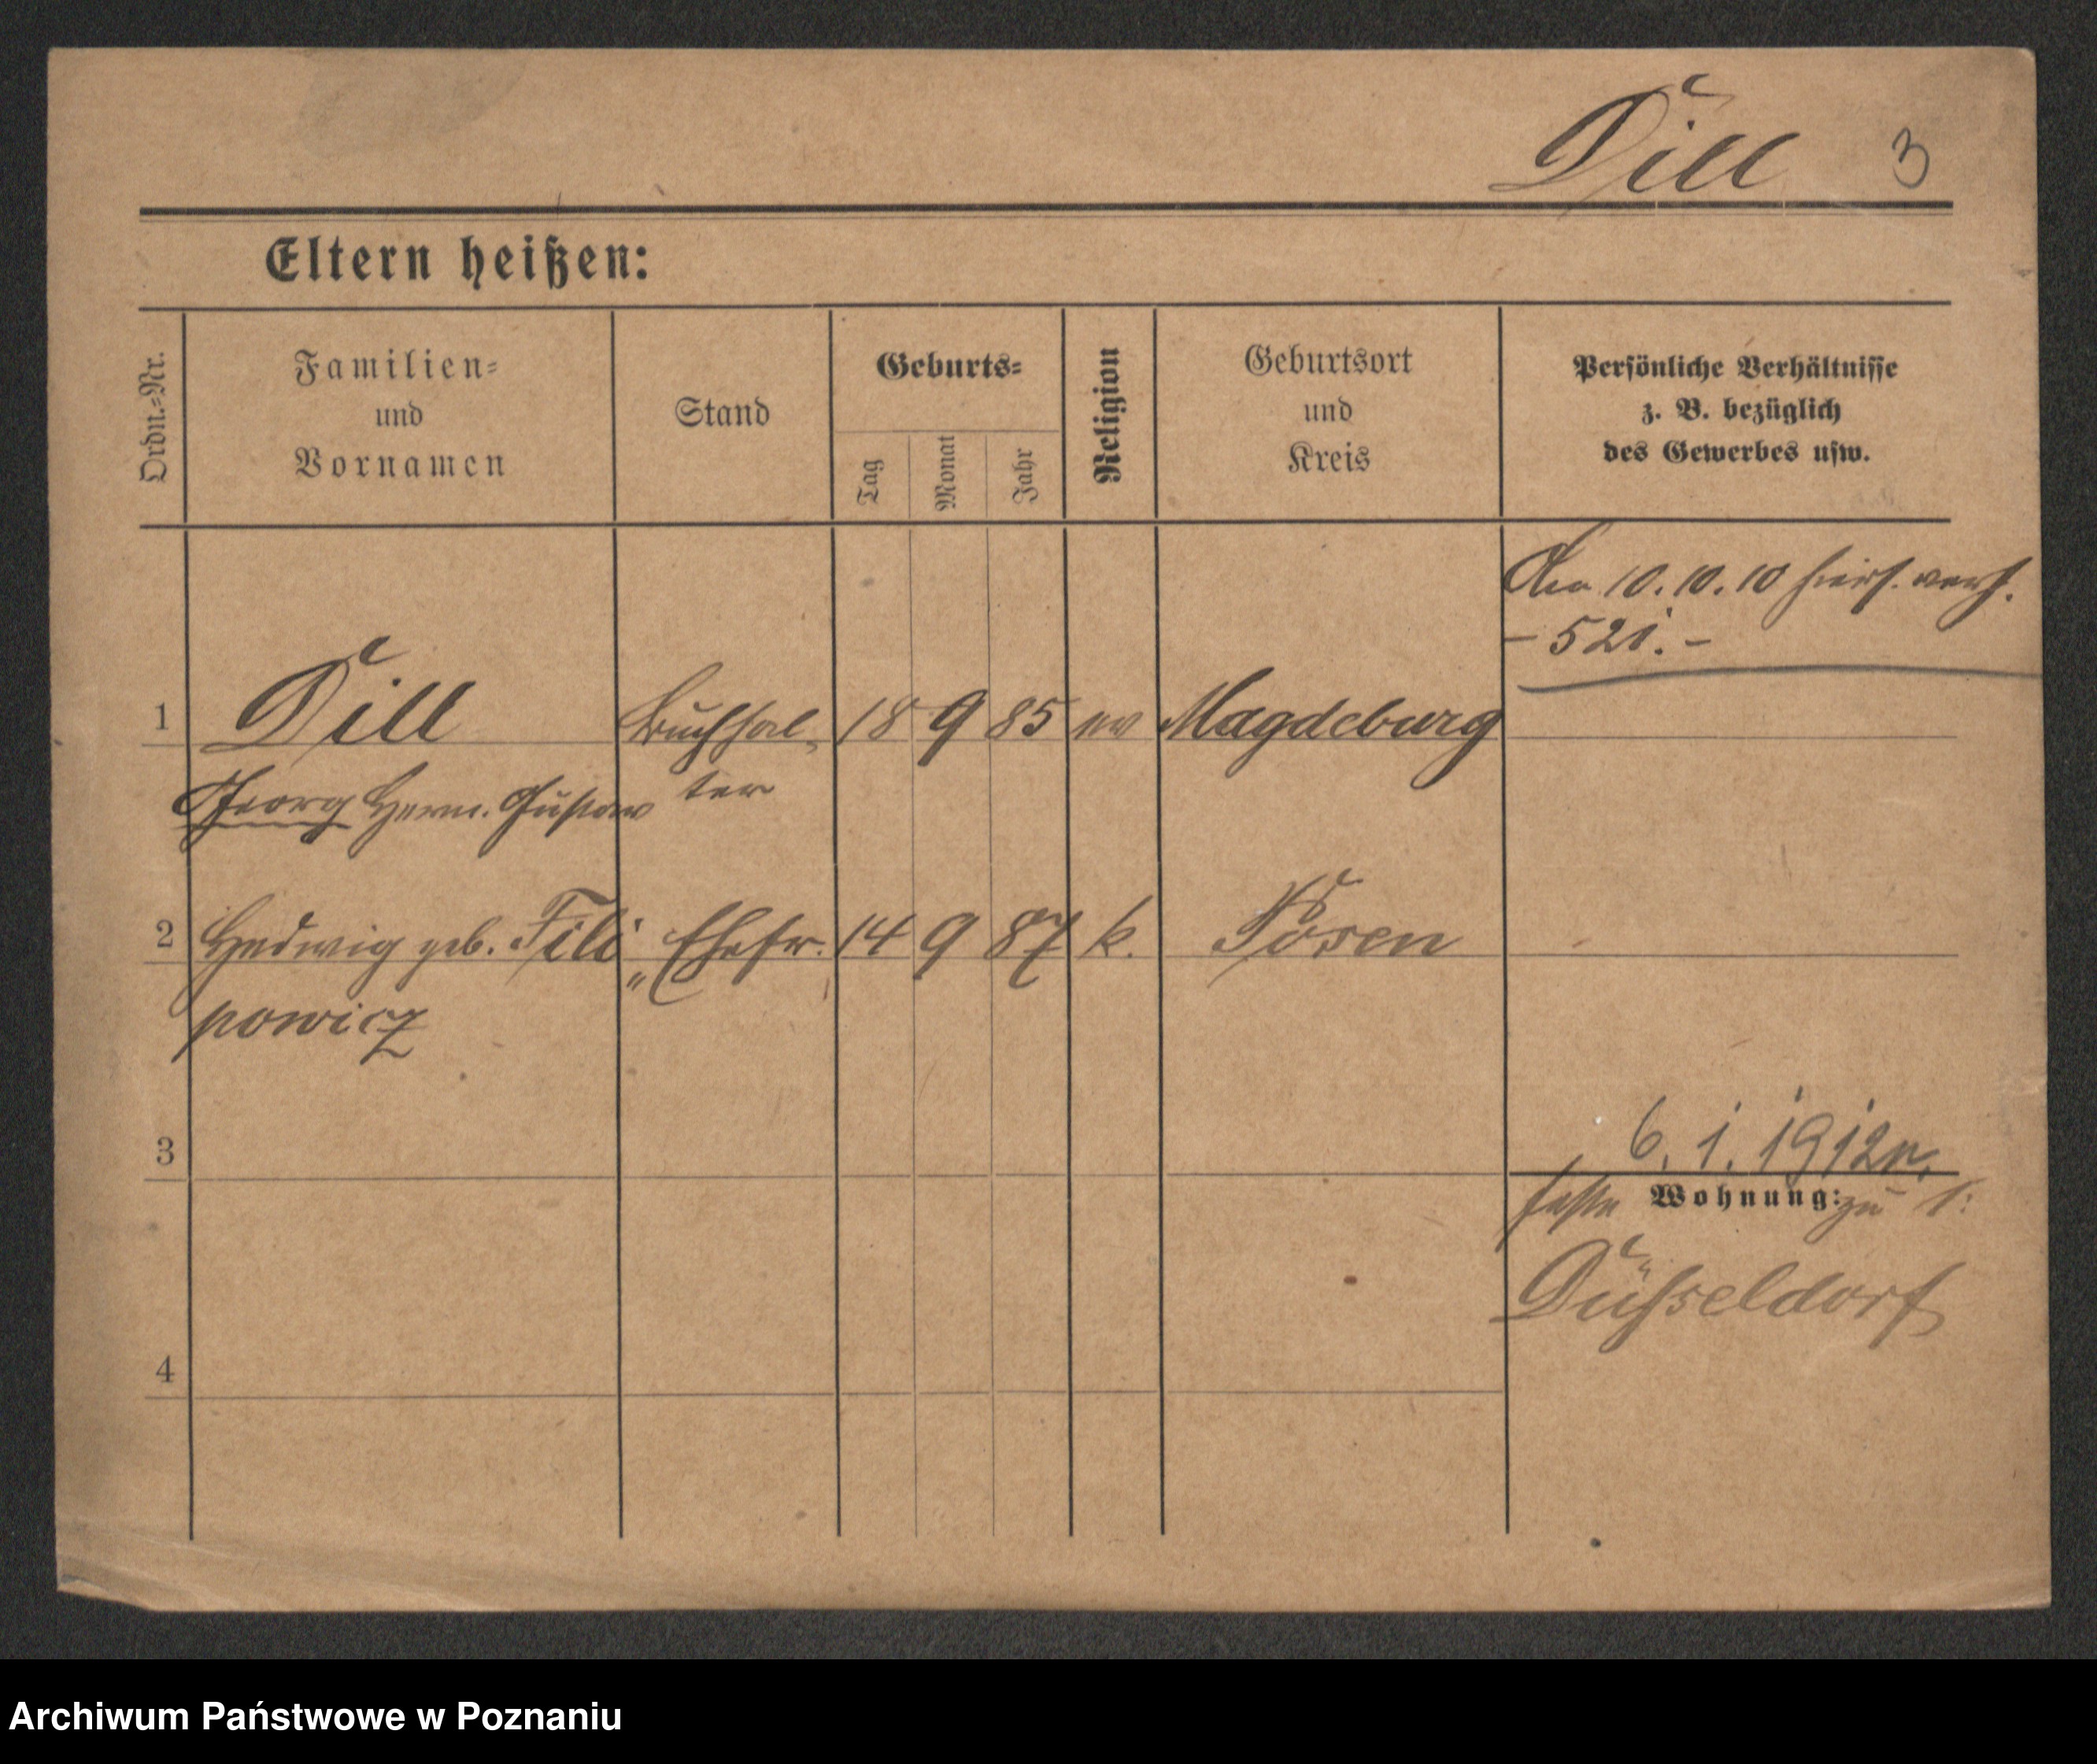 Dill 3
Eltern heißen:
Ordn.-Nr.
Familien-
und
Vornamen
Stand
Geburts-
Tag
Monat
Jahr
Religion
Geburtsort
und
Kreis
Persönliche Verhältnisse
z. B. bezüglich
des Gewerbes usw.
10.10.10
- 521. -
1 Dill Buchhal- 18 9 85 ev Magdeburg
Georg Herm. Gustav ter
2 Hedwig geb. Fili- Ehefr. 14 9 87 k. Posen
powicz
3
6. 1. 1912
Wohnung: zu
Düsseldorf
4
Archiwum Państwowe w Poznaniu